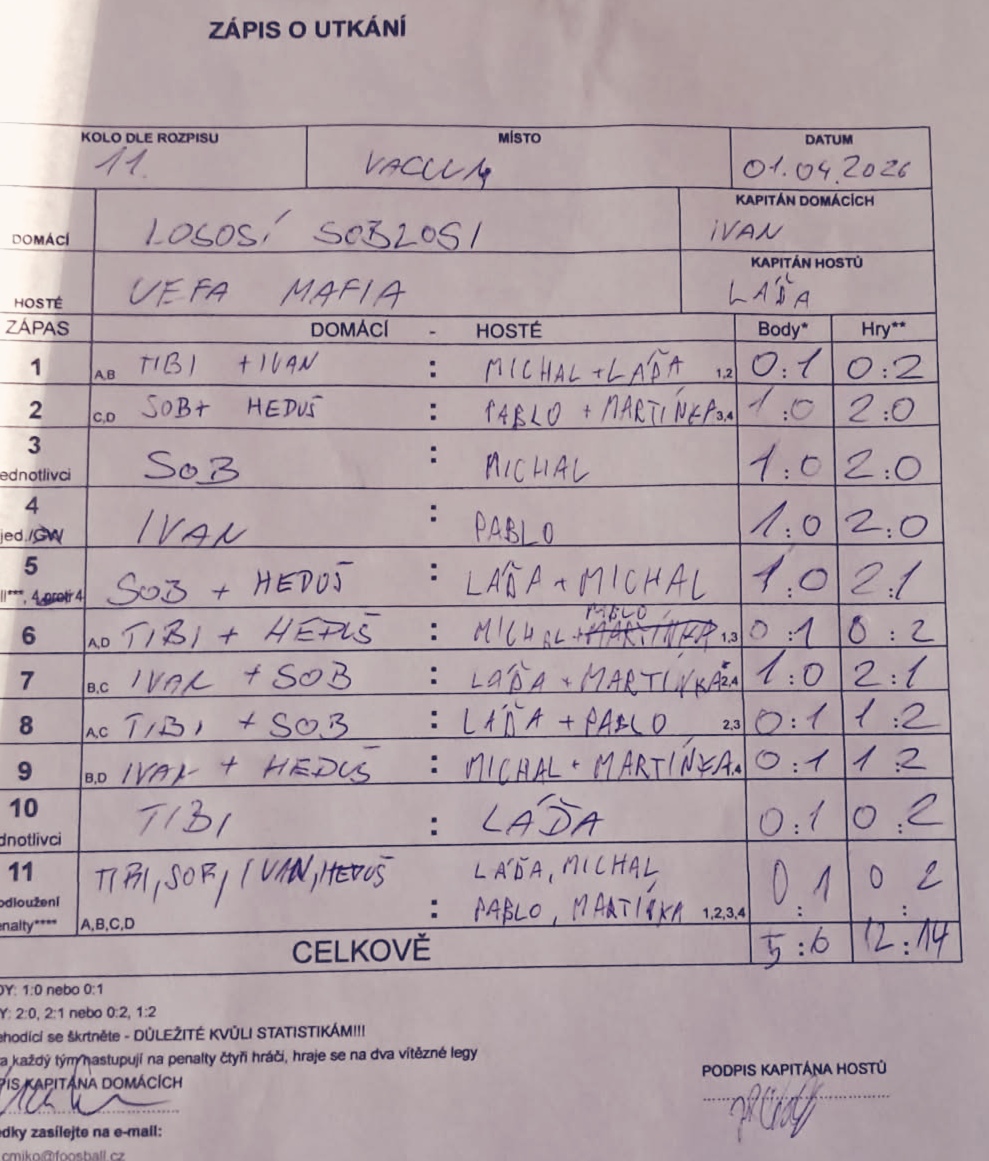 ZÁPIS O UTKÁNÍ
KOLO DLE ROZPISU MÍSTO DATUM
11. VACUUM 01.04.2026
KAPITÁN DOMÁCÍCH
DOMÁCÍ LOSOSÍ SOBLOSI IVAN
KAPITÁN HOSTŮ
HOSTÉ UEFA MAFIA LAĎA
ZÁPAS DOMÁCÍ - HOSTÉ Body* Hry**
1 A,B TIBI + IVAN : MICHAL + LAĎA 1,2 0:1 0:2
2 C,D SOB + HEDUŠ : PABLO + MARTÍNKA 3,4 1:0 2:0
3 ednotlivci SOB : MICHAL 1:0 2:0
4 jed./GW IVAN : PABLO 1:0 2:0
5 ll***, 4 proti 4 SOB + HEDUŠ : LAĎA + MICHAL 1:0 2:1
6 A,D TIBI + HEDUŠ : MICHAL + PABLO MARTÍNKA 1,3 0:1 0:2
7 B,C IVAN + SOB : LAĎA + MARTÍNKA 2,4 1:0 2:1
8 A,C TIBI + SOB : LAĎA + PABLO 2,3 0:1 1:2
9 B,D IVAN + HEDUŠ : MICHAL + MARTÍNKA ,4 0:1 1:2
10 dnotlivci TIBI : LAĎA 0:1 0:2
11 TIBI, SOB, IVAN, HEDUŠ LAĎA, MICHAL 0:1 0:2
odloužení
enalty**** A,B,C,D : PABLO, MARTÍNKA 1,2,3,4
CELKOVĚ 5:6 12:14
DY: 1:0 nebo 0:1
Y: 2:0, 2:1 nebo 0:2, 1:2
ehodící se škrtněte - DŮLEŽITÉ KVŮLI STATISTIKÁM!!!
a každý tým nastupují na penalty čtyři hráči, hraje se na dva vítězné legy
PIS KAPITÁNA DOMÁCÍCH PODPIS KAPITÁNA HOSTŮ
edky zasílejte na e-mail:
cmiko@foosball.cz